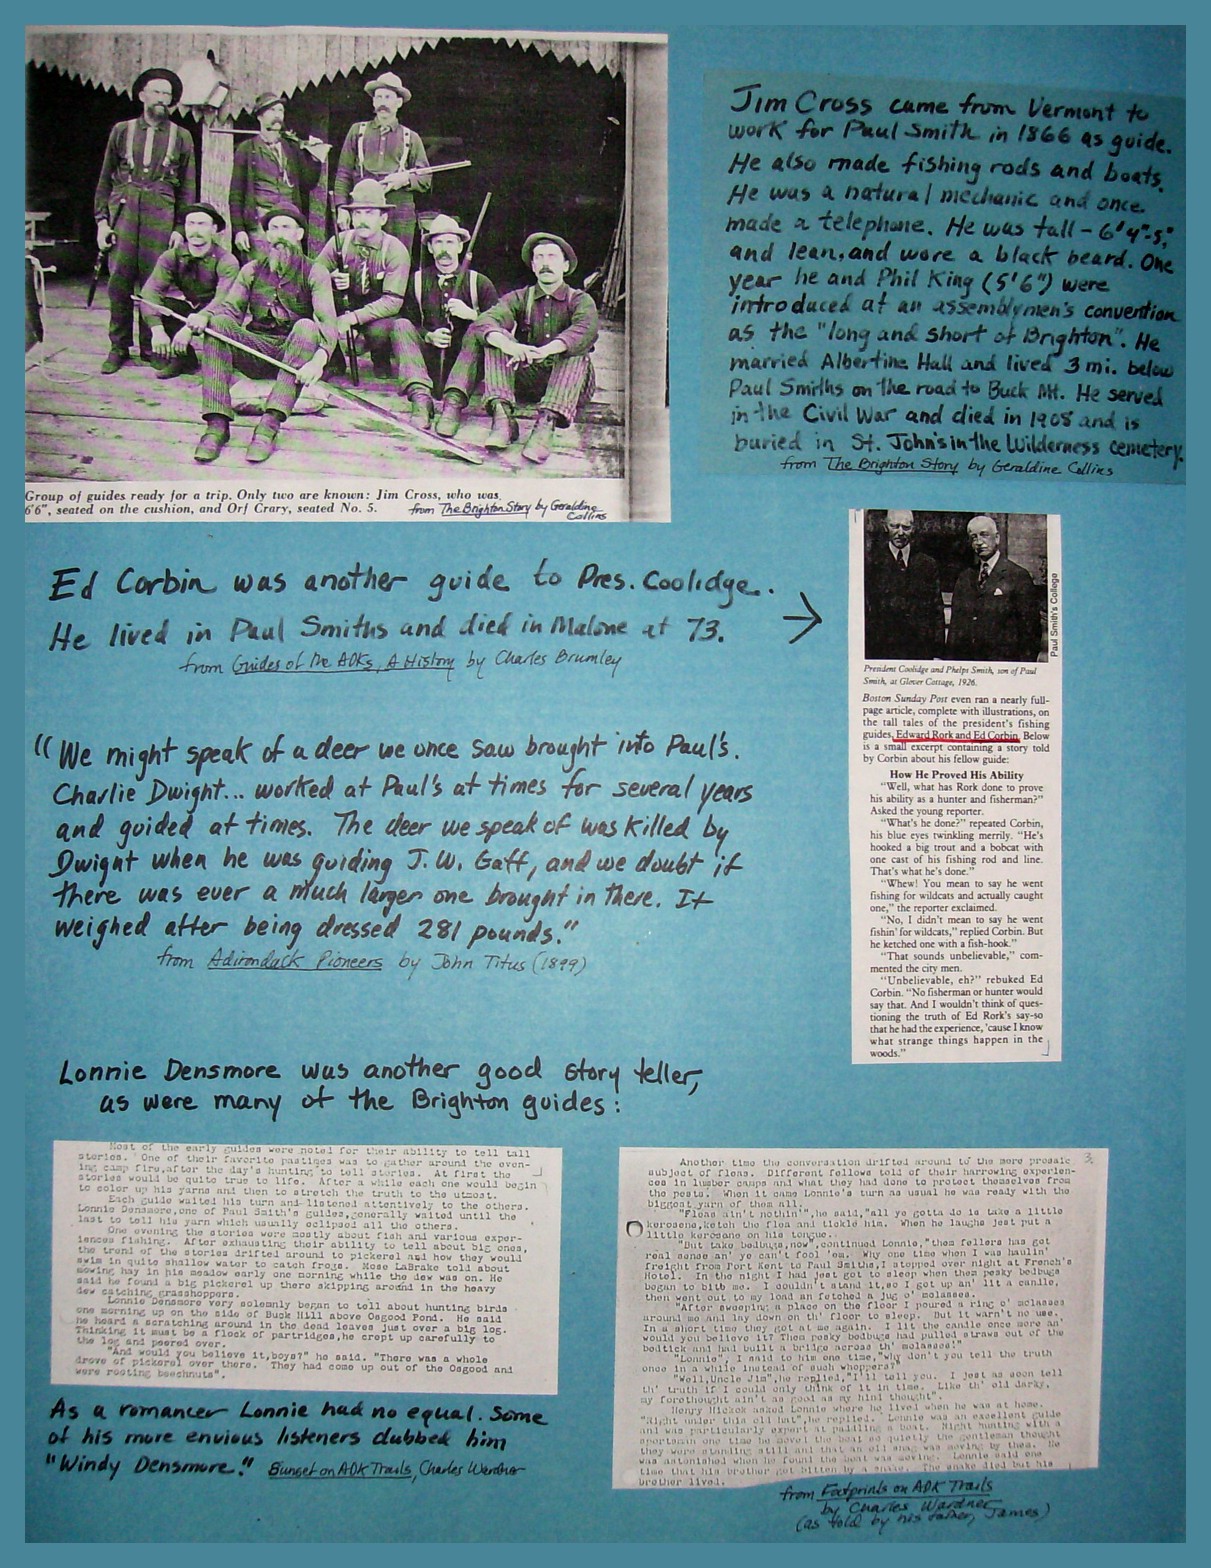 Group of guides ready for a trip. Only two are known: Jim Cross, who was
6'6", seated on the cushion, and Orf Crary, seated No. 5.
from The Brighton Story by Geraldine
Collins
Jim Cross came from Vermont to
work for Paul Smith in 1866 as guide.
He also made fishing rods and boats.
He was a natural mechanic and once
made a telephone. He was tall - 6'4"-5",
and lean, and wore a black beard. One
year he and Phil King (5'6") were
introduced at an assemblymen's convention
as the "long and short of Brighton". He
married Albertine Hall and lived 3 mi. below
Paul Smiths on the road to Buck Mt. He served
in the Civil War and died in 1908 and is
buried in St. John's in the Wilderness cemetery.
from The Brighton Story by Geraldine Collins
Ed Corbin was another guide to Pres. Coolidge.
He lived in Paul Smiths and died in Malone at 73.
from Guides of the ADKs, A History by Charles Brumley
Paul Smith's College
President Coolidge and Phelps Smith, son of Paul
Smith, at Glover Cottage, 1926.
Boston Sunday Post even ran a nearly full-
page article, complete with illustrations, on
the tall tales of the president's fishing
guides, Edward Rork and Ed Corbin. Below
is a small excerpt containing a story told
by Corbin about his fellow guide:
How He Proved His Ability
"Well, what has Rork done to prove
his ability as a hunter and fisherman?"
Asked the young reporter.
"What's he done?" repeated Corbin,
his blue eyes twinkling merrily. "He's
hooked a big trout and a bobcat with
one cast of his fishing rod and line.
That's what he's done."
"Whew! You mean to say he went
fishing for wildcats and actually caught
one," the reporter exclaimed.
"No, I didn't mean to say he went
fishin' for wildcats," replied Corbin. But
he ketched one with a fish-hook."
"That sounds unbelievable," com-
mented the city men.
"Unbelievable, eh?" rebuked Ed
Corbin. "No fisherman or hunter would
say that. And I wouldn't think of ques-
tioning the truth of Ed Rork's say-so
that he had the experience, 'cause I know
what strange things happen in the
woods."
"We might speak of a deer we once saw brought into Paul's.
Charlie Dwight... worked at Paul's at times for several years
and guided at times. The deer we speak of was killed by
Dwight when he was guiding J. W. Gaff, and we doubt if
there was ever a much larger one brought in there. It
weighed after being dressed 281 pounds."
from Adirondack Pioneers by John Titus (1899)
Lonnie Densmore was another good story teller,
as were many of the Brighton guides:
Most of the early guides were noted for their ability to tell tall
stories. One of their favorite pastimes was to gather around the even-
ing camp fire,after the day's hunting to tell stories. At first the
stories would be quite true to life. After a while each one would begin
to color up his yarns and then to stretch the truth to the utmost.
Each guide waited his turn and listened attentively to the others.
Lonnie Densmore,one of Paul Smith's guides,generally waited until the
last to tell his yarn which usually eclipsed all the others.
One evening the stories were mostly about fish and various exper-
iences fishing. After exhausting their ability to tell about big ones,
the trend of the stories drifted around to pickerel and how they would
swim in quite shallow water to catch frogs. Mose LaBrake told about
mowing hay in his meadow early one morning while the dew was on. He
said he found a big pickerel up there skipping around in the heavy
dew catching grasshoppers.
Lonnie Densmore very solemnly began to tell about hunting birds
one morning up on the side of Buck Hill above Osgood Pond. He said
he heard a scratching around in the dead leaves just over a big log.
Thinking it must be a flock of partridges,he crept up carefully to
the log and peered over.
"And would you believe it,boys?" he said. "There was a whole
drove of pickerel over there. They had come up out of the Osgood and
were rooting beechnuts".
As a romancer Lonnie had no equal. Some
of his more envious listeners dubbed him
"Windy Densmore." Sunset on ADK Trails, Charles Wardner
3.
Another time the conversation drifted around to the more prosaic
subject of fleas. Different fellows told of their harrowing experien-
ces in lumber camps and what they had done to protect themselves from
the pests. When it came Lonnie's turn as usual he was ready with the
biggest yarn of them all.
"Fleas ain't nothin'",he said,"all ye gotta do is take a little
kerosene,ketch the flea and tickle him. When he laughs jest put a
little kerosene on his tongue."
"But take bedbugs,now",continued Lonnie,"them fellers has got
real sense an' ye can't fool 'em. Why one time when I was haulin'
freight from Port Kent to Paul Smiths,I stopped over night at French's
Hotel. In the night I had jest got to sleep when them pesky bedbugs
began to bite me. I couldn't stand it,so I got up an' lit a candle,
then went out to my load an fetched a jug o' molasses.
"After sweeping a place on the floor I poured a ring o' molasses
around me and lay down on the floor to sleep. But it warn't no use.
In a short time they got at me again. I lit the candle once more an'
would you believe it? Them pesky bedbugs had pulled straws out of the
bedtick and had built a bridge across th' molasses!"
"Lonnie", I said to him one time,"why don't you tell the truth
once in a while instead of such whoppers?"
"Well,Uncle Jim",he replied,"I'll tell you. I jest as soon tell
th' truth if I could only think of it in time. Like th' old darky,
my forethought ain't as good as my hind thought".
Henry Hickok asked Lonnie where he lived when he was at home.
"Right under this ol hat",he replied. Lonnie was an excellent guide
and was particularly expert at paddling a boat. Night hunting with a
sportsman one time he moved the boat so quietly the gentleman thought
they were standing still and that an old snag was moving by them. He
was astonished when he found the boat was moving. Lonnie said one
time that his brother got bitten by a snake. The snake died but his
brother lived.
from Footprints on ADK Trails
by Charles Wardner
(as told by his father, James)